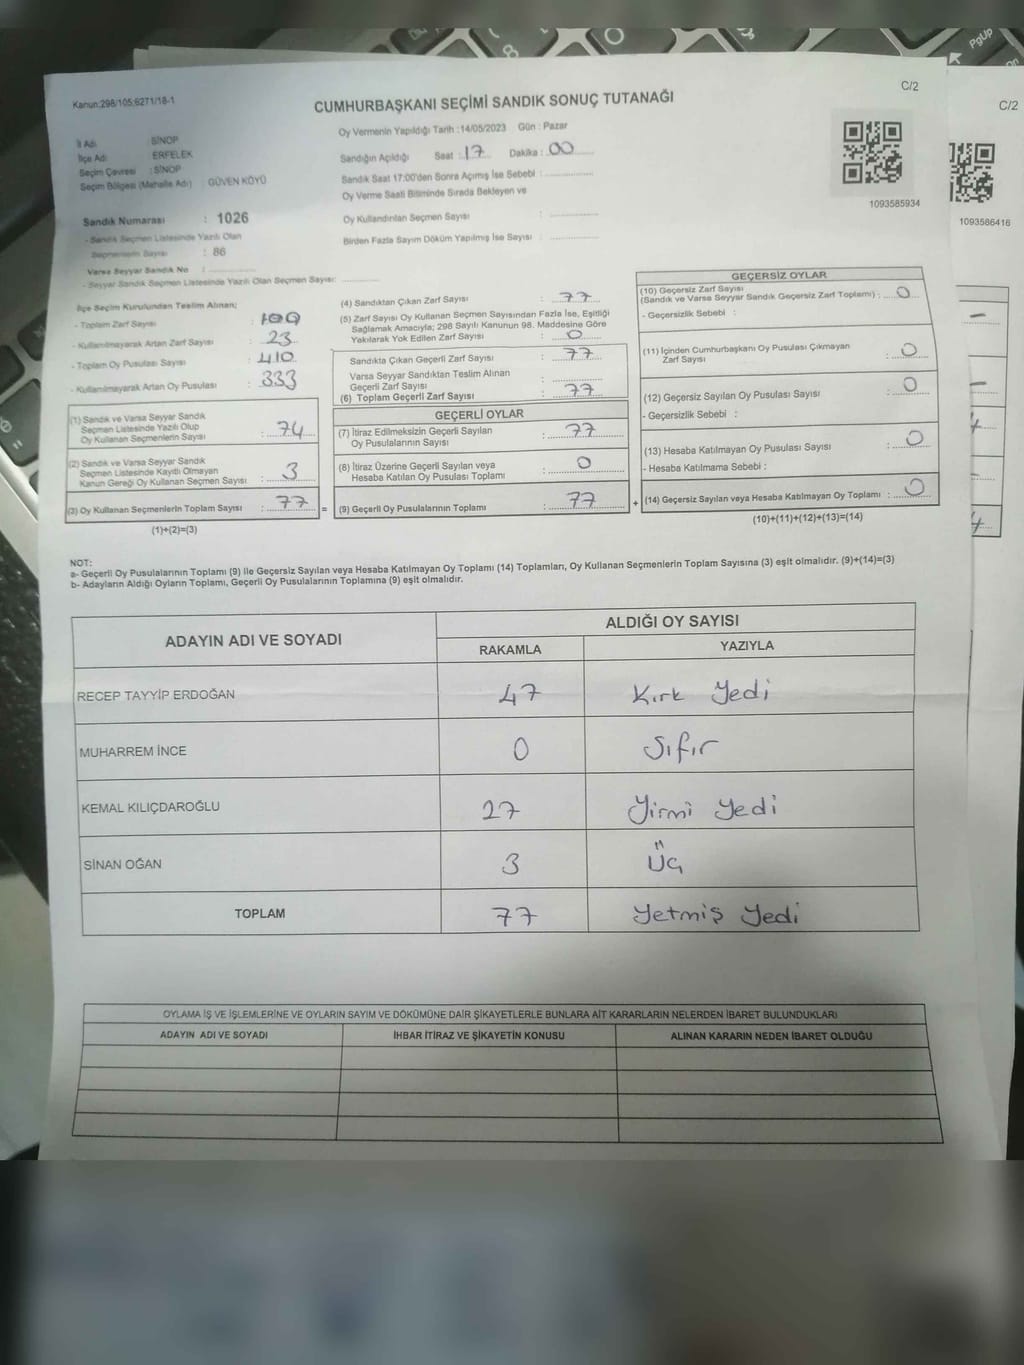 Kanun:298/105;6271/18-1
C/2
CUMHURBAŞKANI SEÇİMİ SANDIK SONUÇ TUTANAĞI
İl Adı : SİNOP
İlçe Adı : ERFELEK
Seçim Çevresi : SİNOP
Seçim Bölgesi (Mahalle Adı) : GÜVEN KÖYÜ
Sandık Numarası : 1026
- Sandık Seçmen Listesinde Yazılı Olan
Seçmenlerin Sayısı : 86
Varsa Seyyar Sandık No :
- Seyyar Sandık Seçmen Listesinde Yazılı Olan Seçmen Sayısı:
Oy Vermenin Yapıldığı Tarih :14/05/2023 Gün : Pazar
Sandığın Açıldığı Saat : 17 Dakika : 00
Sandık Saat 17:00'den Sonra Açımış İse Sebebi :
Oy Verme Saati Bitiminde Sırada Bekleyen ve
Oy Kullandırılan Seçmen Sayısı :
Birden Fazla Sayım Döküm Yapılmış İse Sayısı :
1093585934
İlçe Seçim Kurulundan Teslim Alınan;
- Toplam Zarf Sayısı : 100
- Kullanılmayarak Artan Zarf Sayısı : 23
- Toplam Oy Pusulası Sayısı : 410
- Kullanılmayarak Artan Oy Pusulası : 333
(1) Sandık ve Varsa Seyyar Sandık
Seçmen Listesinde Yazılı Olup
Oy Kullanan Seçmenlerin Sayısı : 74
(2) Sandık ve Varsa Seyyar Sandık
Seçmen Listesinde Kayıtlı Olmayan
Kanun Gereği Oy Kullanan Seçmen Sayısı : 3
(3) Oy Kullanan Seçmenlerin Toplam Sayısı : 77 =
(1)+(2)=(3)
(4) Sandıktan Çıkan Zarf Sayısı : 77
(5) Zarf Sayısı Oy Kullanan Seçmen Sayısından Fazla İse, Eşitliği
Sağlamak Amacıyla; 298 Sayılı Kanunun 98. Maddesine Göre
Yakılarak Yok Edilen Zarf Sayısı : 0
Sandıkta Çıkan Geçerli Zarf Sayısı : 77
Varsa Seyyar Sandıktan Teslim Alınan
Geçerli Zarf Sayısı :
(6) Toplam Geçerli Zarf Sayısı : 77
GEÇERLİ OYLAR
(7) İtiraz Edilmeksizin Geçerli Sayılan
Oy Pusulalarının Sayısı : 77
(8) İtiraz Üzerine Geçerli Sayılan veya
Hesaba Katılan Oy Pusulası Toplamı : 0
(9) Geçerli Oy Pusulalarının Toplamı : 77 +
GEÇERSİZ OYLAR
(10) Geçersiz Zarf Sayısı
(Sandık ve Varsa Seyyar Sandık Geçersiz Zarf Toplamı) : 0
- Geçersizlik Sebebi :
(11) İçinden Cumhurbaşkanı Oy Pusulası Çıkmayan
Zarf Sayısı : 0
(12) Geçersiz Sayılan Oy Pusulası Sayısı : 0
- Geçersizlik Sebebi :
(13) Hesaba Katılmayan Oy Pusulası Sayısı : 0
- Hesaba Katılmama Sebebi :
(14) Geçersiz Sayılan veya Hesaba Katılmayan Oy Toplamı : 0
(10)+(11)+(12)+(13)=(14)
NOT:
a- Geçerli Oy Pusulalarının Toplamı (9) ile Geçersiz Sayılan veya Hesaba Katılmayan Oy Toplamı (14) Toplamları, Oy Kullanan Seçmenlerin Toplam Sayısına (3) eşit olmalıdır. (9)+(14)=(3)
b- Adayların Aldığı Oyların Toplamı, Geçerli Oy Pusulalarının Toplamına (9) eşit olmalıdır.
ADAYIN ADI VE SOYADI ALDIĞI OY SAYISI
RAKAMLA YAZIYLA
RECEP TAYYİP ERDOĞAN 47 Kırk Yedi
MUHARREM İNCE 0 Sıfır
KEMAL KILIÇDAROĞLU 27 Yirmi Yedi
SİNAN OĞAN 3 Üç
TOPLAM 77 Yetmiş Yedi
OYLAMA İŞ VE İŞLEMLERİNE VE OYLARIN SAYIM VE DÖKÜMÜNE DAİR ŞİKAYETLERLE BUNLARA AİT KARARLARIN NELERDEN İBARET BULUNDUKLARI
ADAYIN ADI VE SOYADI İHBAR İTİRAZ VE ŞİKAYETİN KONUSU ALINAN KARARIN NEDEN İBARET OLDUĞU
C/2
1093586416
PgUp